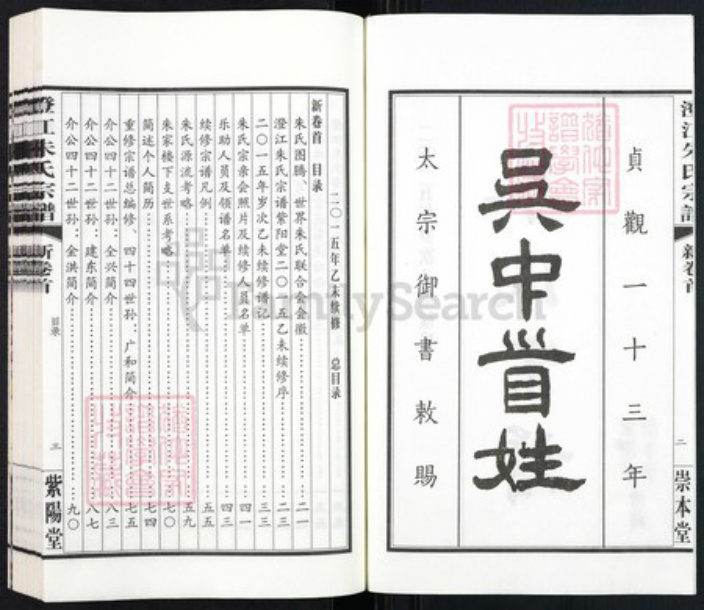 貞觀一十三年
吳中首姓
太宗御書敕賜
崇本堂
二
新卷首
二〇一五年乙未续修 总目录
新卷首 目录
朱氏图腾、世界朱氏联合会会徽 二一
澄江朱氏宗谱紫阳堂二〇一五乙未续修序 二三
二〇一五年岁次乙未续修谱记 三三
朱氏宗亲会照片及续修人员名单 四一
乐助人员及领谱名单 四三
续修宗谱凡例 五五
朱氏源流考略 五九
朱家楼下支世系考略 七〇
简述个人简历 七四
重修宗谱总编修、四十四世孙:广和简介 七五
介公四十二世孙:全兴简介 八三
介公四十二世孙:建东简介 八七
介公四十二世孙:金洪简介 九〇
澄江朱氏宗譜
新卷首
目录
三
紫陽堂
FamilySearch